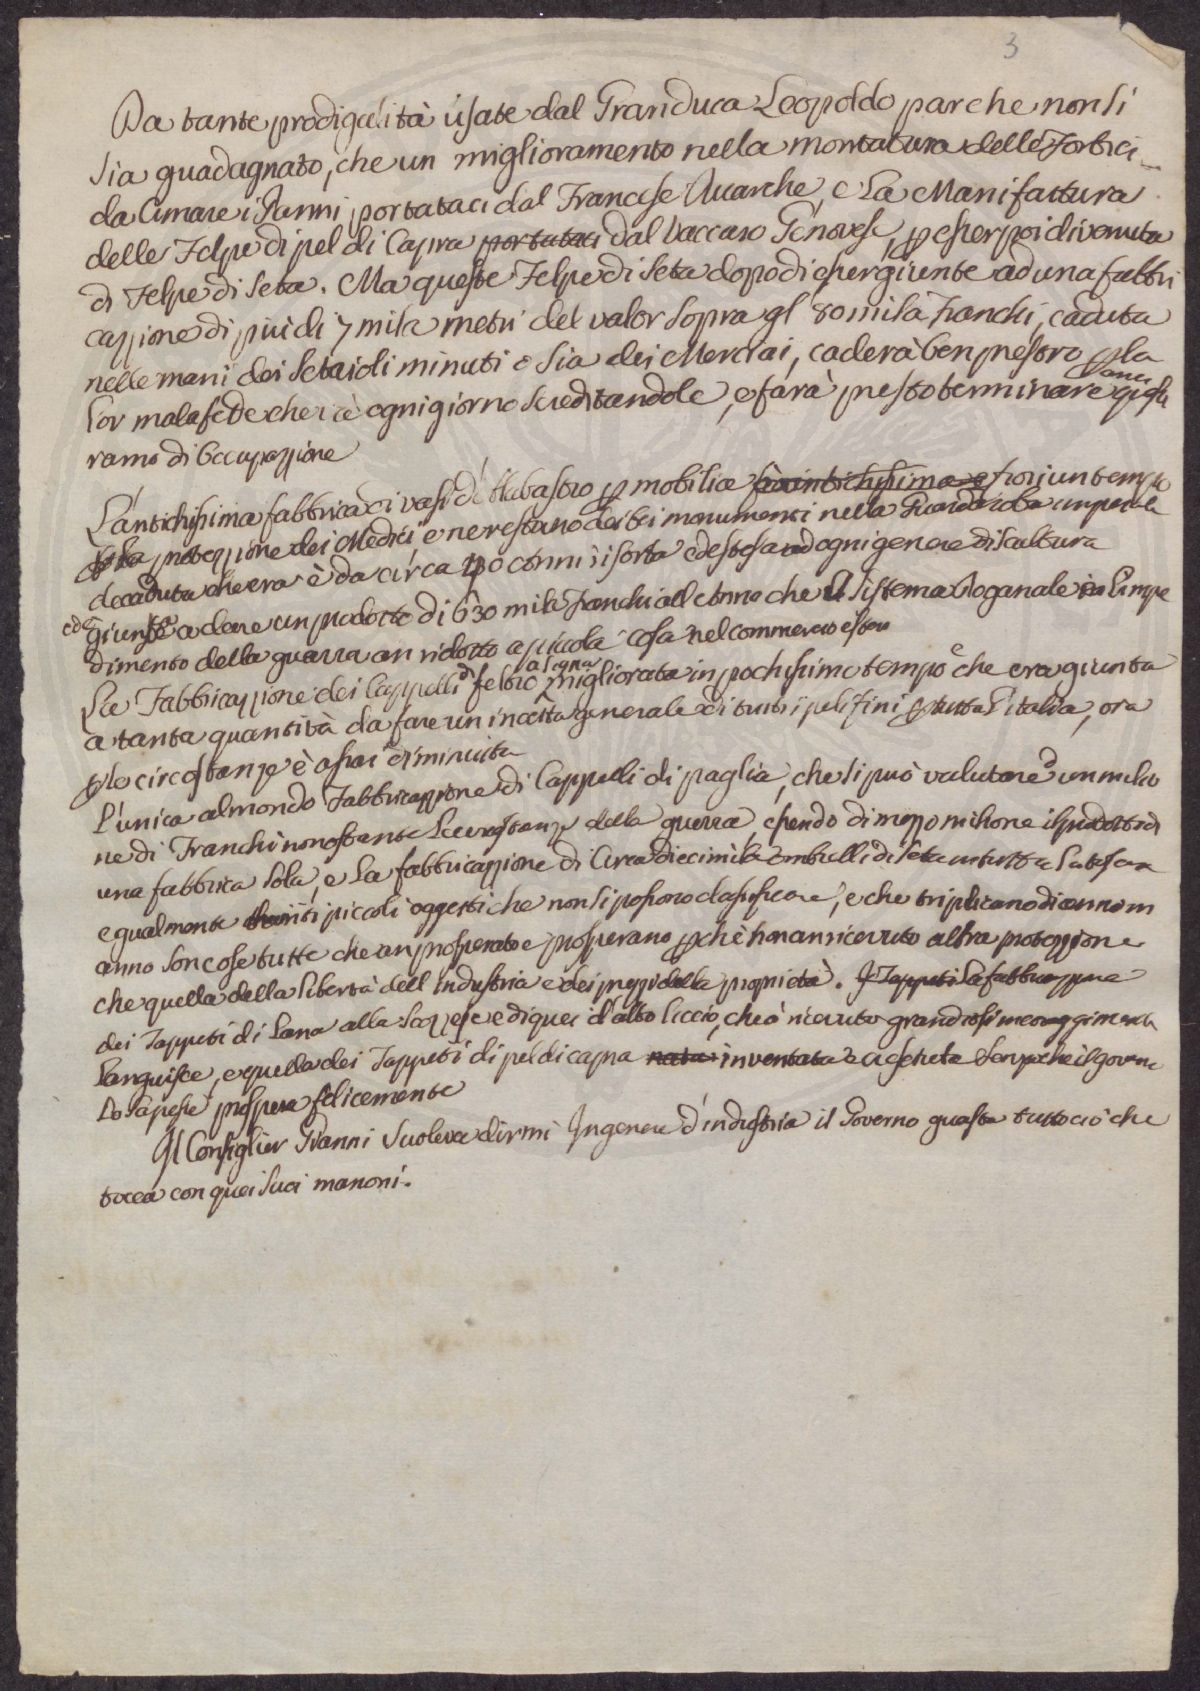 3
Da tante prodigalità usate dal Granduca Leopoldo par che non si
sia guadagnato, che un miglioramento nella montatura delle Forbici
da Cimare i Panni portataci dal Francese Quarche, e La Manifattura
delle Felpe di pel di Capra portataci dal Vaccaro Genovese, p esser poi divenuta
di Felpe di Seta. Ma queste Felpe di Seta dopo di esser giunte ad una fabbri
cazzione di piu di 7 mila metri del valor sopra gl 80 mila franchi, caduta
nelle mani dei Setaioli minuti o sia dei Merciai, caderà ben presto p la
lor malafede che và ogni giorno screditandole, e farà presto terminare anco questo
ramo di Occupazzione
L'antichissima fabbrica di vasi d'Alabastro p mobilia fiorì un tempo
p la protezzione dei Medici e ne restano dei bei monumenti nella Guardaroba imperiale
decaduta che era è da circa anni risorta e distesa ad ogni genere di scultura
ed è giunta a dare un prodotto di 630 mila franchi all'Anno che il sistema Doganale e L'impe
dimento della guerra an ridotto a piccola cosa nel commercio estero
La Fabbricazzione dei Cappelli di feltro a segno migliorata in pochissimo tempo che era giunta
a tanta quantità da fare un incetta generale di tutti i peli fini p tutta l'italia, ora
p le circostanze è assai diminuita
L'unica al mondo Fabbricazzione di Cappelli di paglia, che si può valutare un milio
ne di Franchi nonostante le circostanze della guerra, essendo di mezzo milione il prodotto di
una fabbrica sola, e la fabbricazzione di Circa diecimila Ombrelli di Seta in tutta la Toscana
egualmente tanti piccoli oggetti che non si possono classificare, e che triplicano di anno in
anno son cose tutte che an prosperato e prosperano p chè non an ricevuto altra protezzione
che quella della libertà dell'industria e dei prezzi della proprietà. I Tappeti La fabbricazzione
dei Tappeti di Lana alla Scozzese e di quei d'alto liccio, che à ricevuto grandiosi incoraggimenti
languisce, e quella dei Tappeti di pel di capra nata inventata e cresciuta senza che il governo
lo sapesse prospera felicemente
Il Consigliere Gianni Suoleva dirmi In genere d'industria il Governo guasta tutto ciò che
tocca con quei suoi manoni.